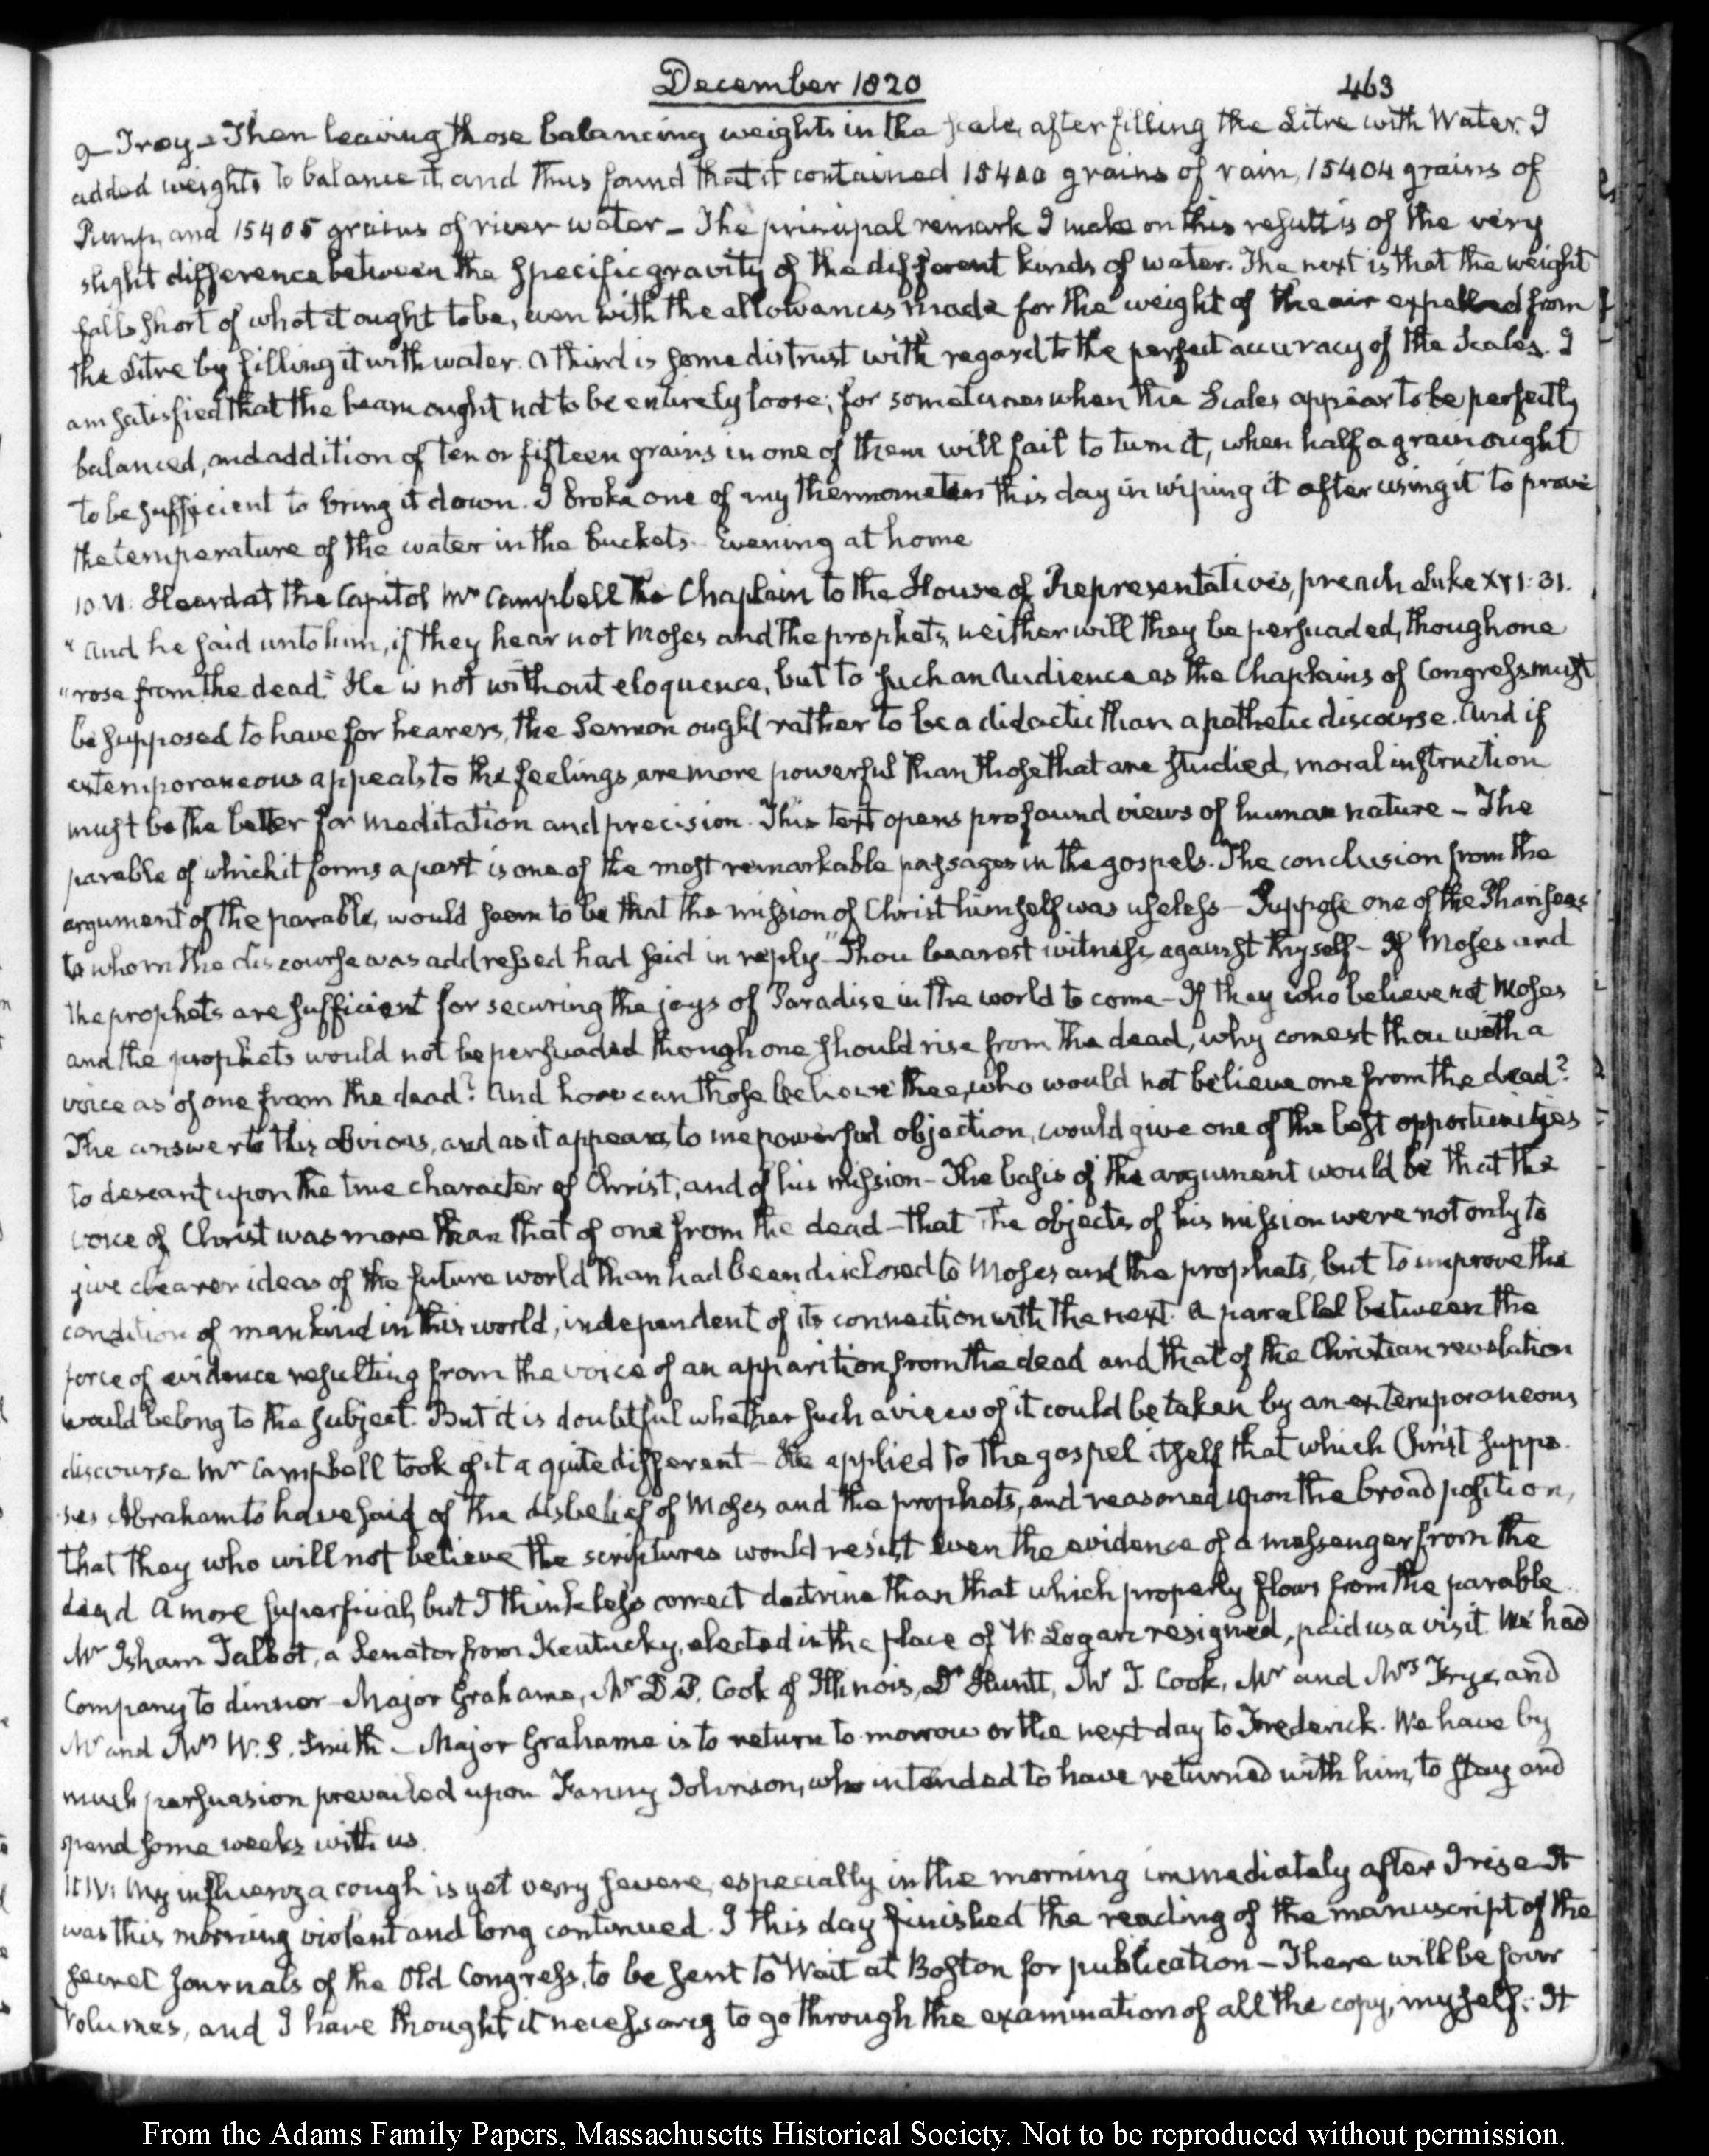 December 1820
463
9 Troy – Then leaving those balancing weights in the scale, after filling the Litre with Water. I
added weights to balance it, and thus found that it contained 15400 grains of rain, 15404 grains of
Pump, and 15405 grains of river water – The principal remark I make on this result is of the very
slight difference between the specific gravity of the different kinds of water. The next is that the weight
falls short of what it ought to be, even with the allowances made for the weight of the air expelled from
the Litre by filling it with water. A third is some distrust with regard to the perfect accuracy of the Scales. I
am satisfied that the beam ought not to be entirely loose; for sometimes when the Scales appear to be perfectly
balanced, and addition of ten or fifteen grains in one of them will fail to turn it, when half a grain ought
to be sufficient to bring it down. I broke one of my thermometers this day in wiping it after using it to prove
the temperature of the water in the buckets. Evening at home
10. VI. Heard at the Capitol Mr Campbell the Chaplain to the House of Representatives, preach Luke XVI. 31.
" And he said unto him, if they hear not Moses and the prophets, neither will they be persuaded, though one
" rose from the dead." He is not without eloquence, but to such an Audience as the Chaplains of Congress must
be supposed to have for hearers, the Sermon ought rather to be a didactic than a pathetic discourse. And if
extemporaneous appeals to the feelings, are more powerful than those that are studied, moral instruction
must be the better for meditation and precision. This text opens profound views of human nature – The
parable of which it forms a part is one of the most remarkable passages in the gospels. The conclusion from the
argument of the parable, would seem to be that the mission of Christ himself was useless – Suppose one of the Pharisees
to whom the discourse was addressed had said in reply "Thou bearest witness against thyself – If Moses and
the prophets are sufficient for securing the joys of Paradise in the world to come – If they who believe not Moses
and the prophets would not be persuaded though one should rise from the dead, why comest thou with a
voice as of one from the dead? And how can those believe thee, who would not believe one from the dead?
The answer to this obvious, and as it appears to me powerful objection, would give one of the best opportunities
to descant upon the true character of Christ, and of his mission – The basis of the argument would be that the
voice of Christ was more than that of one from the dead – that the objects of his mission were not only to
give clearer ideas of the future world than had been disclosed to Moses and the prophets, but to improve the
condition of mankind in this world, independent of its connection with the next. A parallel between the
force of evidence resulting from the voice of an apparition from the dead and that of the Christian revelation
would belong to the subject. But it is doubtful whether such a view of it could be taken by an extemporaneous
discourse. Mr Campbell took of it a quite different – He applied to the gospel itself that which Christ suppo-
ses Abraham to have said of the disbelief of Moses and the prophets, and reasoned upon the broad position,
that they who will not believe the scriptures would resist even the evidence of a messenger from the
dead. A more superficial, but I think less correct doctrine than that which properly flows from the parable.
Mr Isham Talbot, a Senator from Kentucky, elected in the place of W. Logan resigned, paid us a visit. We had
Company to dinner – Major Grahame, Mr D. P. Cook of Illinois, Dr Huntt, Mr J. Cook, Mr and Mrs Frye, and
Mr and Mrs W. S. Smith – Major Grahame is to return to morrow or the next day to Frederick. We have by
much persuasion prevailed upon Fanny Johnson, who intended to have returned with him, to stay and
spend some weeks with us.
11 IV. My influenza cough is yet very severe, especially in the morning immediately after I rise – It
was this morning violent and long continued. I this day finished the reading of the manuscript of the
secret Journals of the Old Congress, to be sent to Wait at Boston for publication – There will be four
Volumes, and I have thought it necessary to go through the examination of all the copy, myself. It
From the Adams Family Papers, Massachusetts Historical Society. Not to be reproduced without permission.